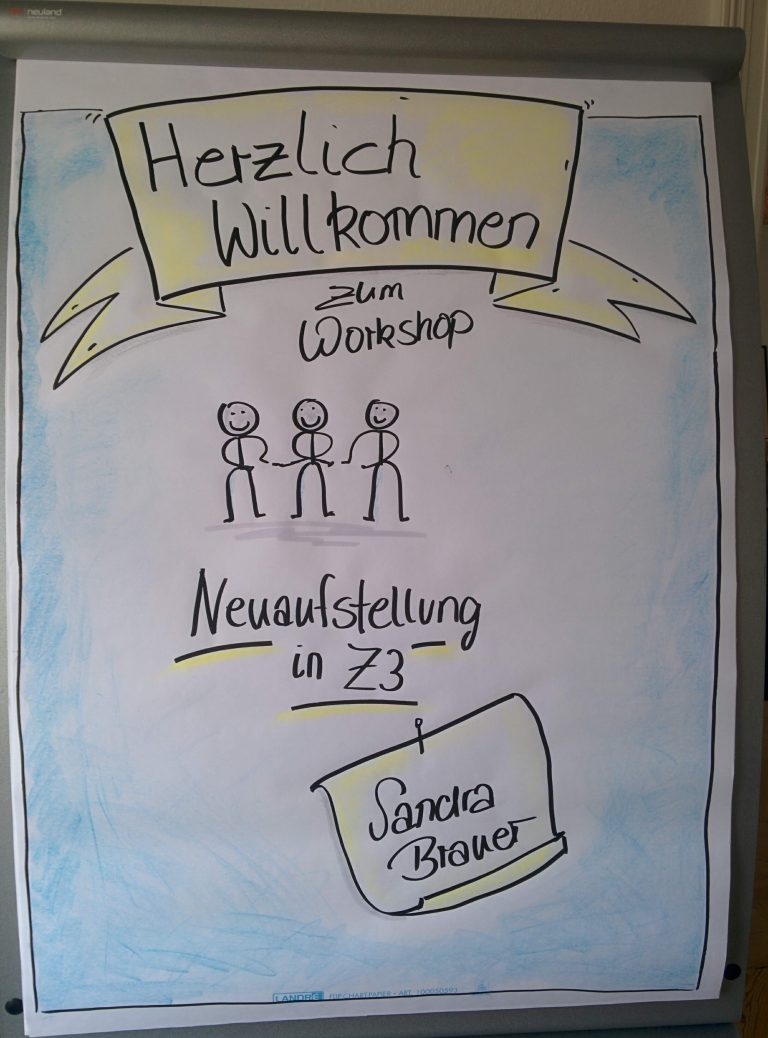 neuland
Herzlich
Willkommen
zum
Workshop
Neuaufstellung
in Z3
Sandra
Brauer
LANDRÉ FLIPCHARTPAPIER - ART. 100050593